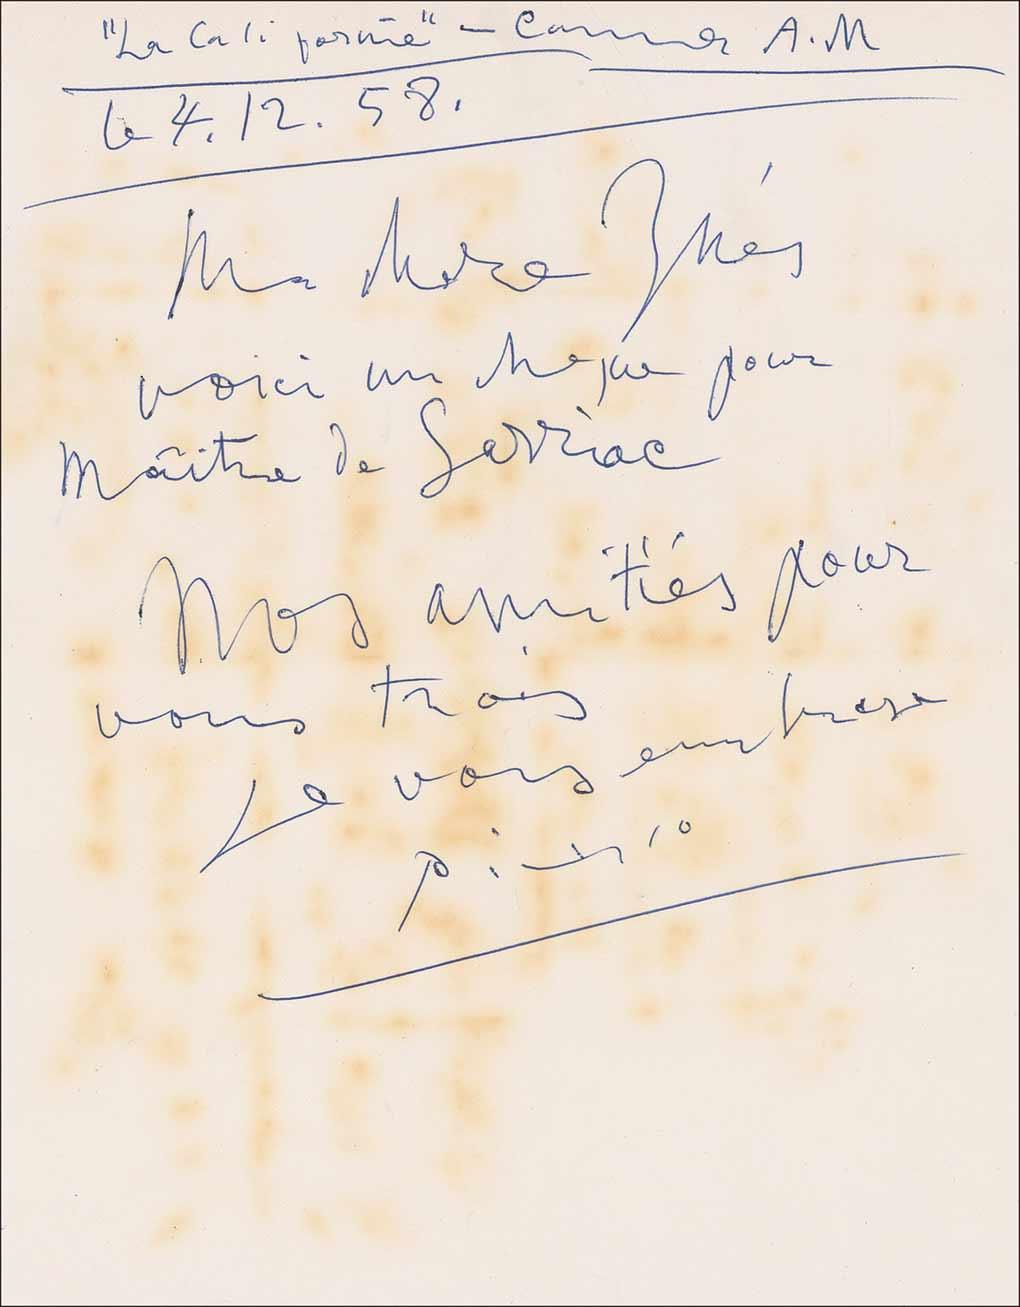 "La Californie" - Cannes A.M
le 4.12.58.
Ma chère Inés
voici un chèque pour
Maître de Sarriac
Nos amitiés pour
vous trois
Je vous embrasse
Picasso